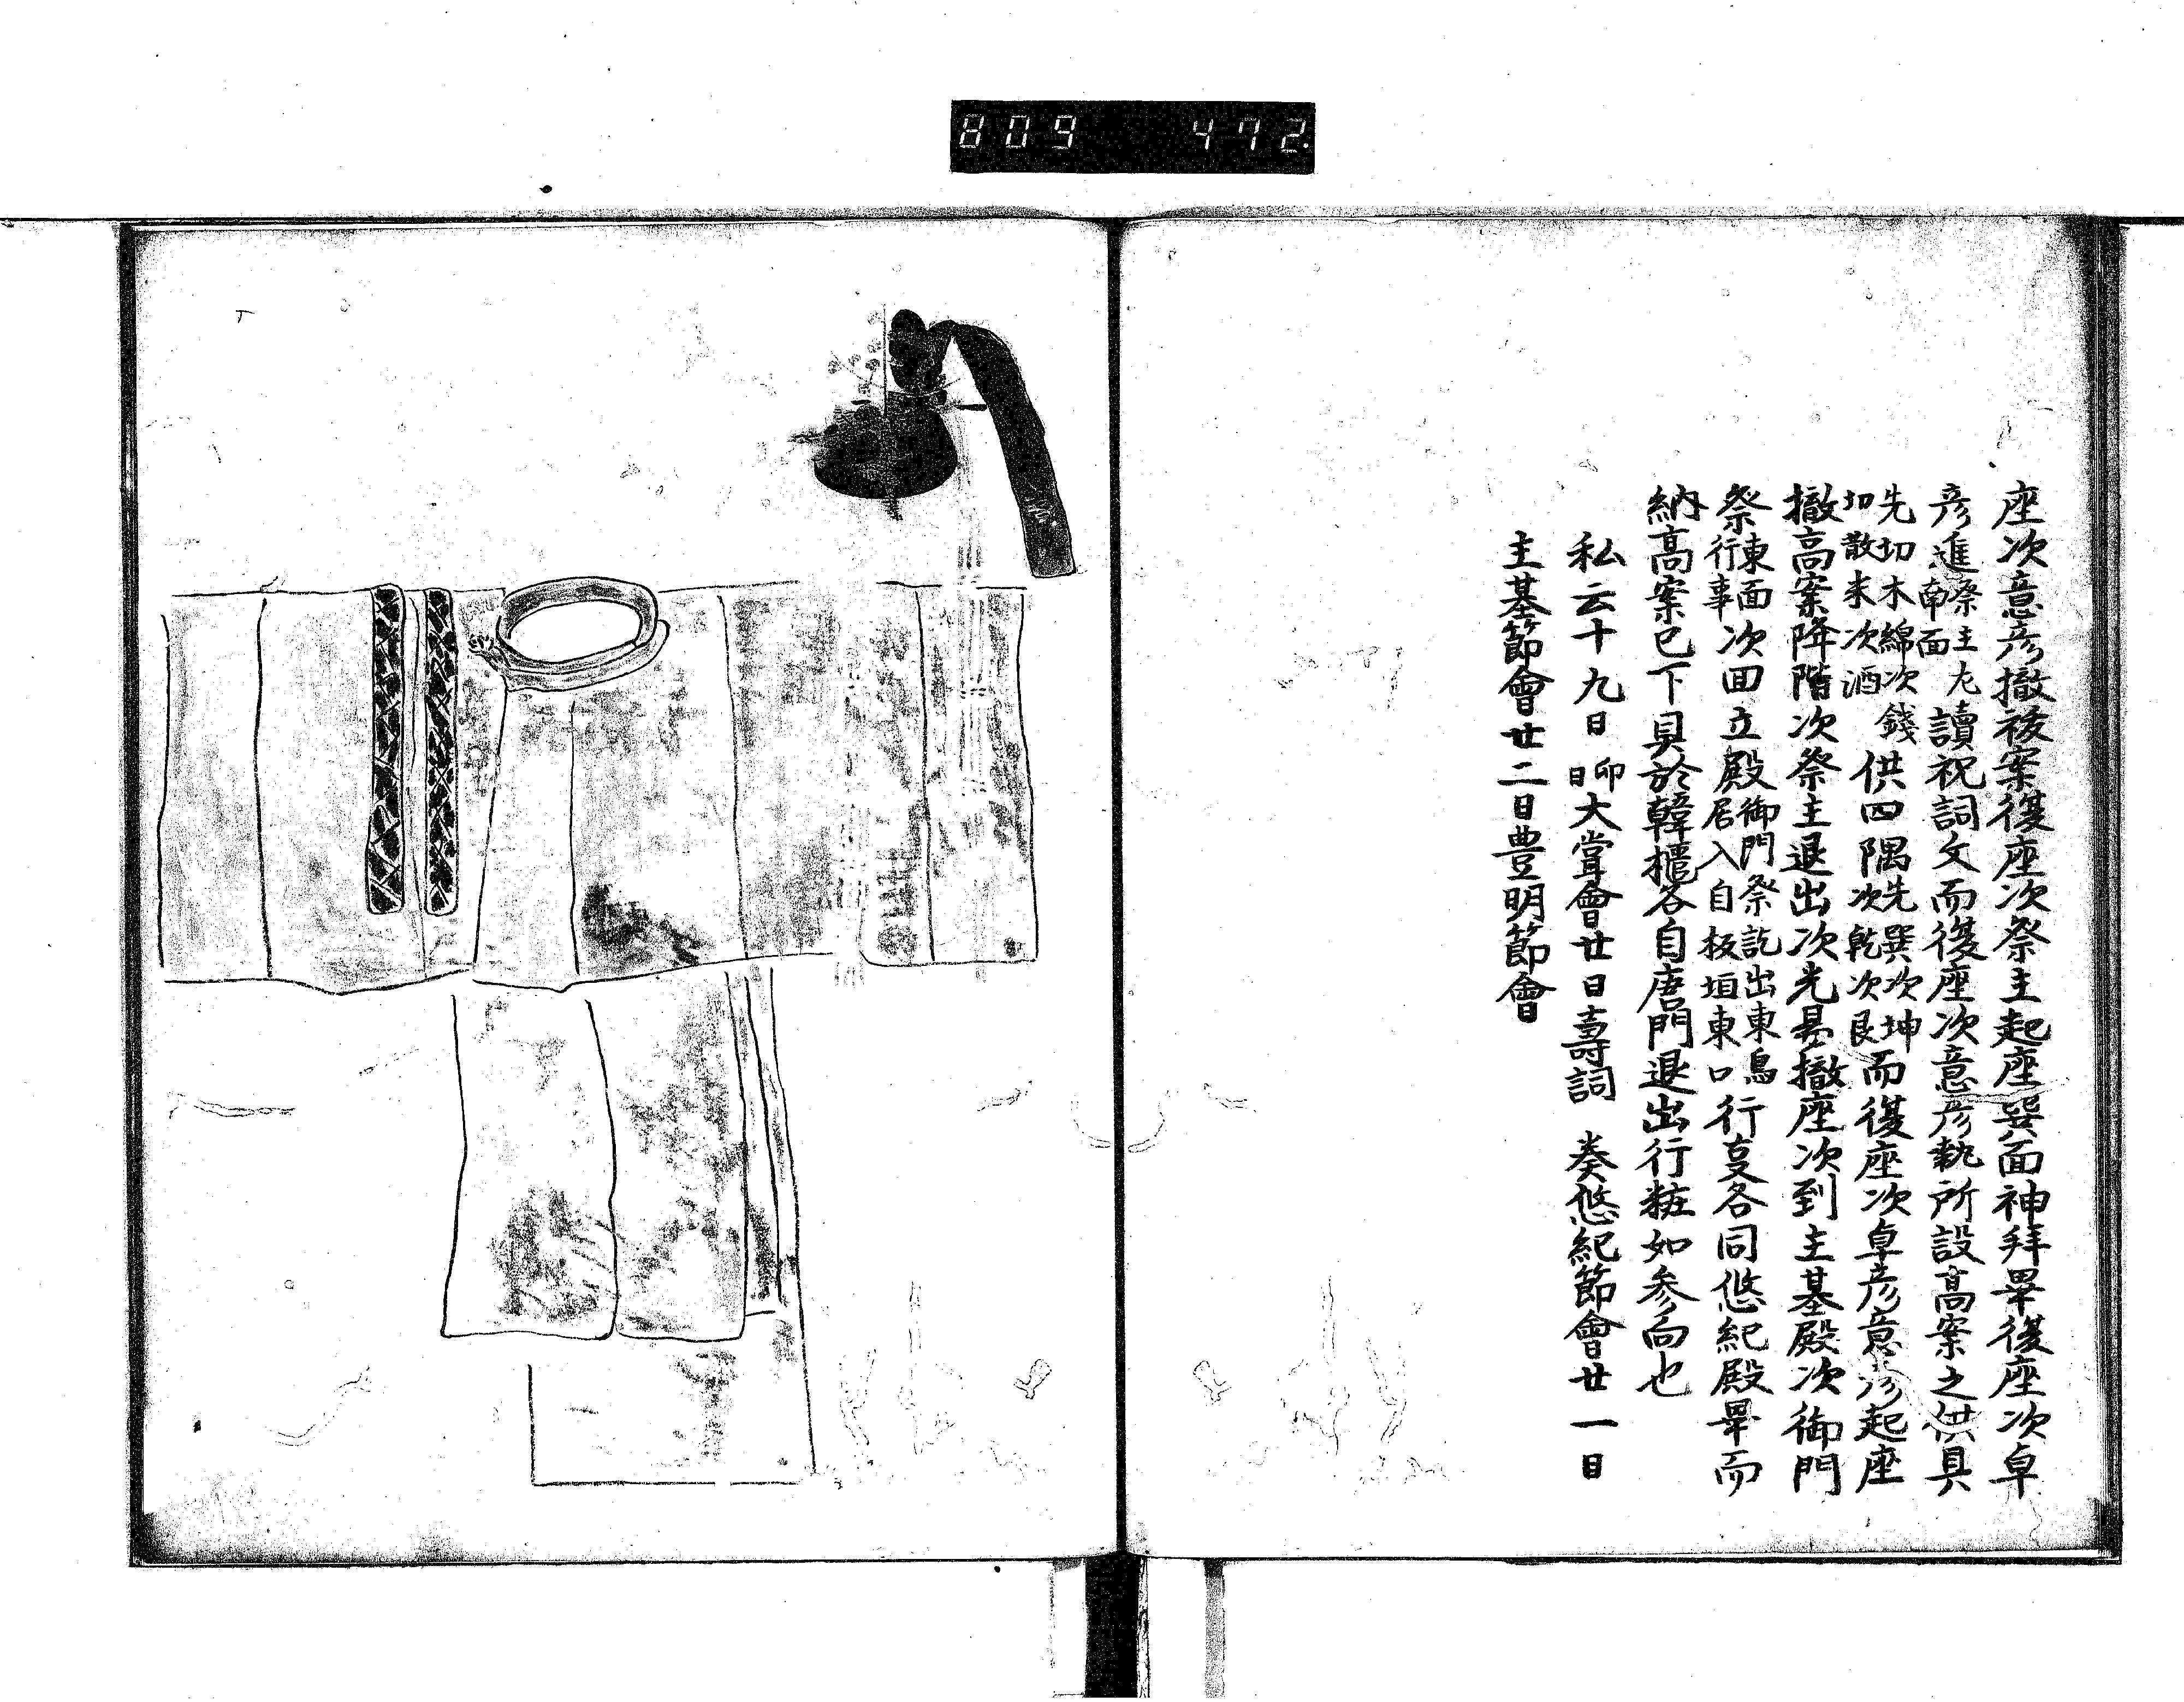 809 472.
座次意彦撤後案復座次祭主起座巽面神拜畢復座次卓
彦進祭主左南面讀祝詞文而復座次意彦執所設高案之供具
先切木綿次錢切散米次酒供四隅先巽次坤次乾次艮而復座次卓彦意彦起座
撤高案降階次祭主退出次光基撤座次到主基殿次御門
祭東面行事次回立殿御門祭訖出東鳥居入自板垣東口行㕝各同悠紀殿畢而
納高案已下具於韓櫃各自唐門退出行粧如参向也
私云十九日卯日大嘗會廿日壽詞 奏悠紀節會廿一日
主基節會廿二日豊明節會